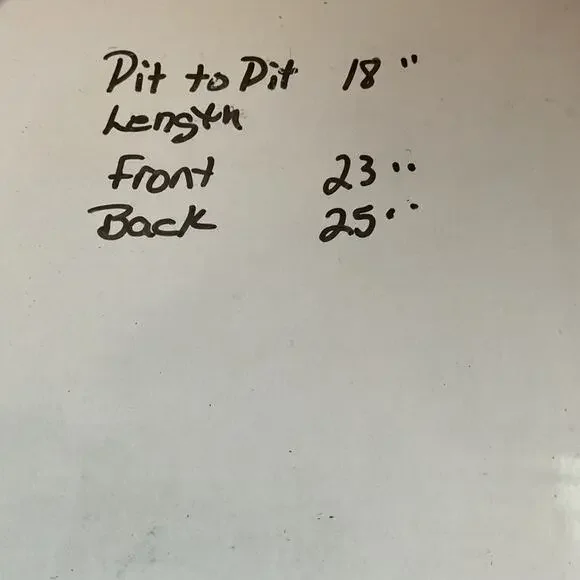 Pit to Pit 18"
Length
Front 23"
Back 25"